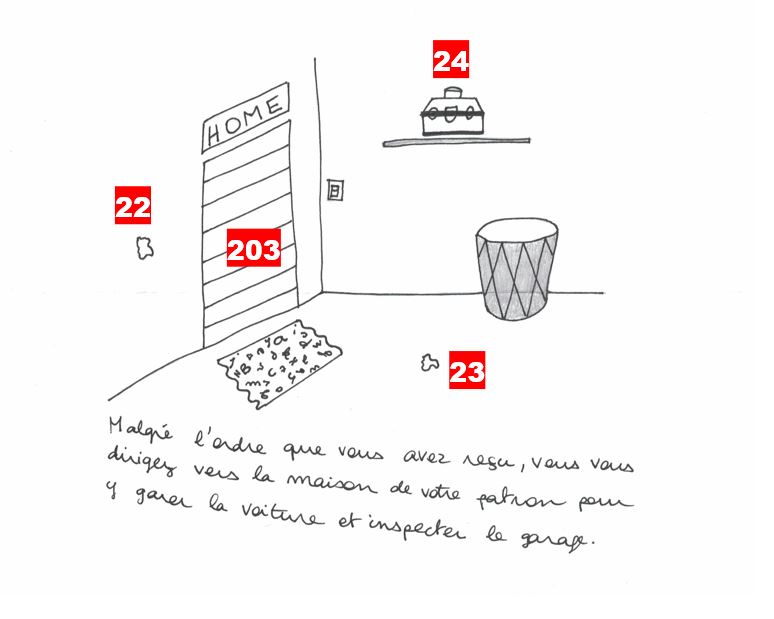 24
HOME
22
203
23
Malgré l'ordre que vous avez reçu, vous vous
dirigez vers la maison de votre patron pour
y garer la voiture et inspecter le garage.